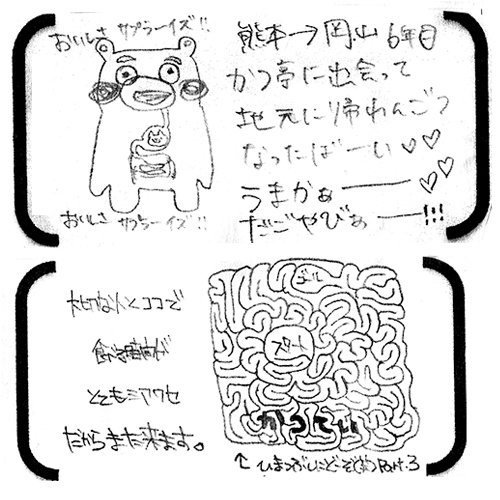 おいしさ サプラーイズ!!
おいしさ サプラーイズ!!
熊本→岡山 6年目
かつ亭に出会って
地元に帰れんごつ
なったばーい♡♡
うまかぁー♡♡
だごやびぁー!!!
大切な人とココで
食べる時間が
とてもシアワセ
だからまた来ます。
ゴール
スタート
かつてい
↑ひまつぶしにどーぞ Part.3